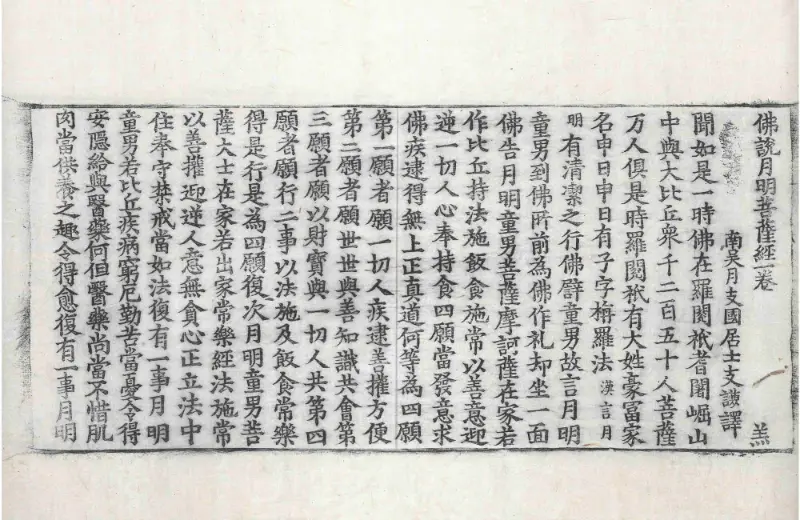 佛說月明菩薩經一卷 羔
南吴月支國居士支謙譯
聞如是一時佛在羅閱祇耆闍崛山
中與大比丘衆千二百五十人菩薩
万人俱是時羅閱祇有大姓豪富家
名申日申日有子字栴羅法漢言月
明有清潔之行佛辟童男故言月明
童男到佛所前為佛作礼却坐一面
佛告月明童男菩薩摩訶薩在家若
作比丘持法施飯食施常以善意迎
逆一切人心奉持食四願當發意求
佛疾逮得無上正真道何等為四願
第一願者願一切人疾逮善權方便
第二願者願世世與善知識共會第
三願者願以財寶與一切人共第四
願者願行二事以法施及飯食常樂
得是行是為四願復次月明童男菩
薩大士在家若出家常樂經法施常
以善權迎逆人意無貪心正立法中
住奉守禁戒當如法復有一事月明
童男若比丘疾病窮厄勤苦當憂令得
安隱給與醫藥何但醫藥尚當不惜肌
肉當供養之趣令得愈復有一事月明